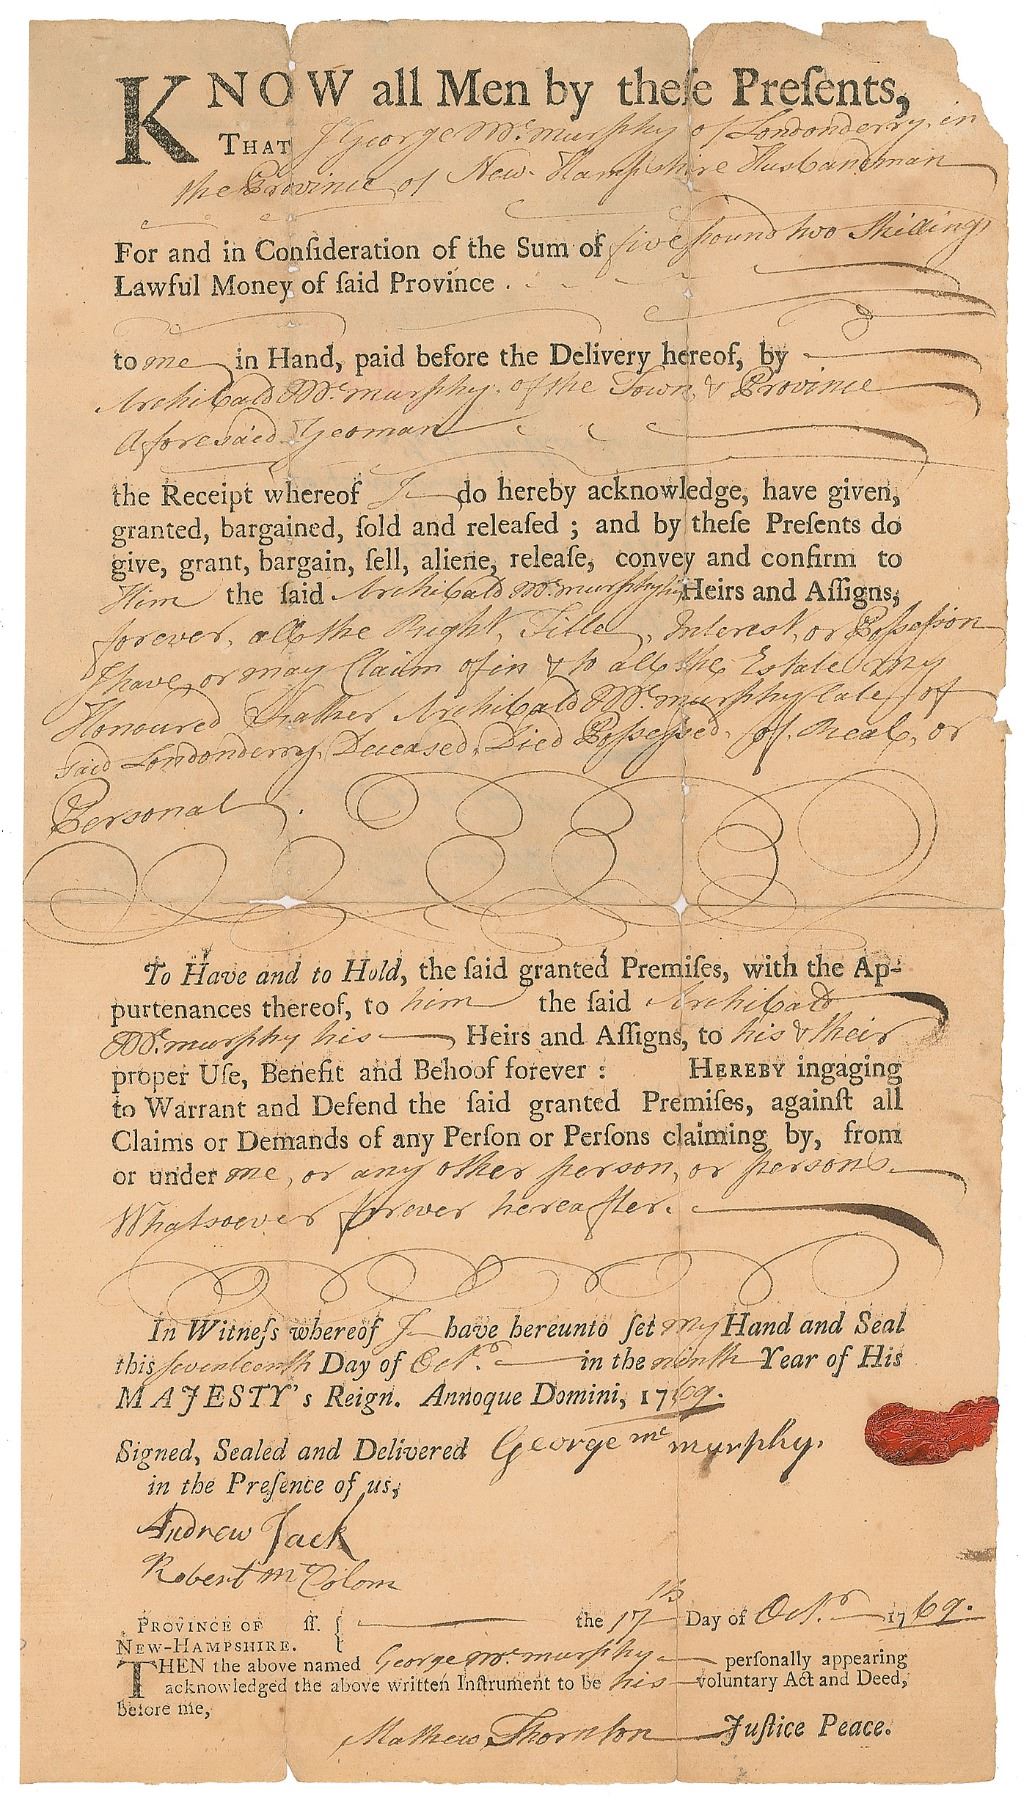 KNOW all Men by theſe Preſents,
THAT I George Mc.murphy of Londonderry, in
the Province of New-Hampshire Husbandman
For and in Conſideration of the Sum of five pound two Shillings
Lawful Money of ſaid Province .
to me in Hand, paid before the Delivery hereof, by
Archibald Mc.murphy. of the Town & Province
Aforesaid Yeoman
the Receipt whereof I do hereby acknowledge, have given,
granted, bargained, ſold and releaſed ; and by theſe Preſents do
give, grant, bargain, ſell, aliene, releaſe, convey and confirm to
Him the ſaid Archibald Mc.murphy his Heirs and Aſſigns,
forever, all the Right, Title, Interest, or Poſseſsion
I have, or may Claim of in & to all the Estate my
Honoured Father Archibald Mc.murphy late of
said Londonderry, Deceased, Died Poſseſsed, of, Real, or
Personal.
To Have and to Hold, the ſaid granted Premiſes, with the Ap-
purtenances thereof, to him the ſaid Archibald
Mc.murphy his Heirs and Aſſigns, to his & their
proper Uſe, Benefit and Behoof forever : HEREBY ingaging
to Warrant and Defend the ſaid granted Premiſes, againſt all
Claims or Demands of any Perſon or Perſons claiming by, from
or under me, or any other person, or persons
Whatsoever forever hereafter.
In Witneſs whereof I have hereunto ſet my Hand and Seal
this seventeenth Day of Octr. in the ninth Year of His
MAJESTY's Reign. Annoque Domini, 1769.
Signed, Sealed and Delivered George mc murphy.
in the Preſence of us,
Andrew Jack
Robert mc Colom
PROVINCE OF ſſ. { the 17th Day of Octr. 1769.
NEW-HAMPSHIRE.
THEN the above named George Mc.murphy perſonally appearing
acknowledged the above written Inſtrument to be his voluntary Act and Deed,
before me,
Mathew Thornton Juſtice Peace.